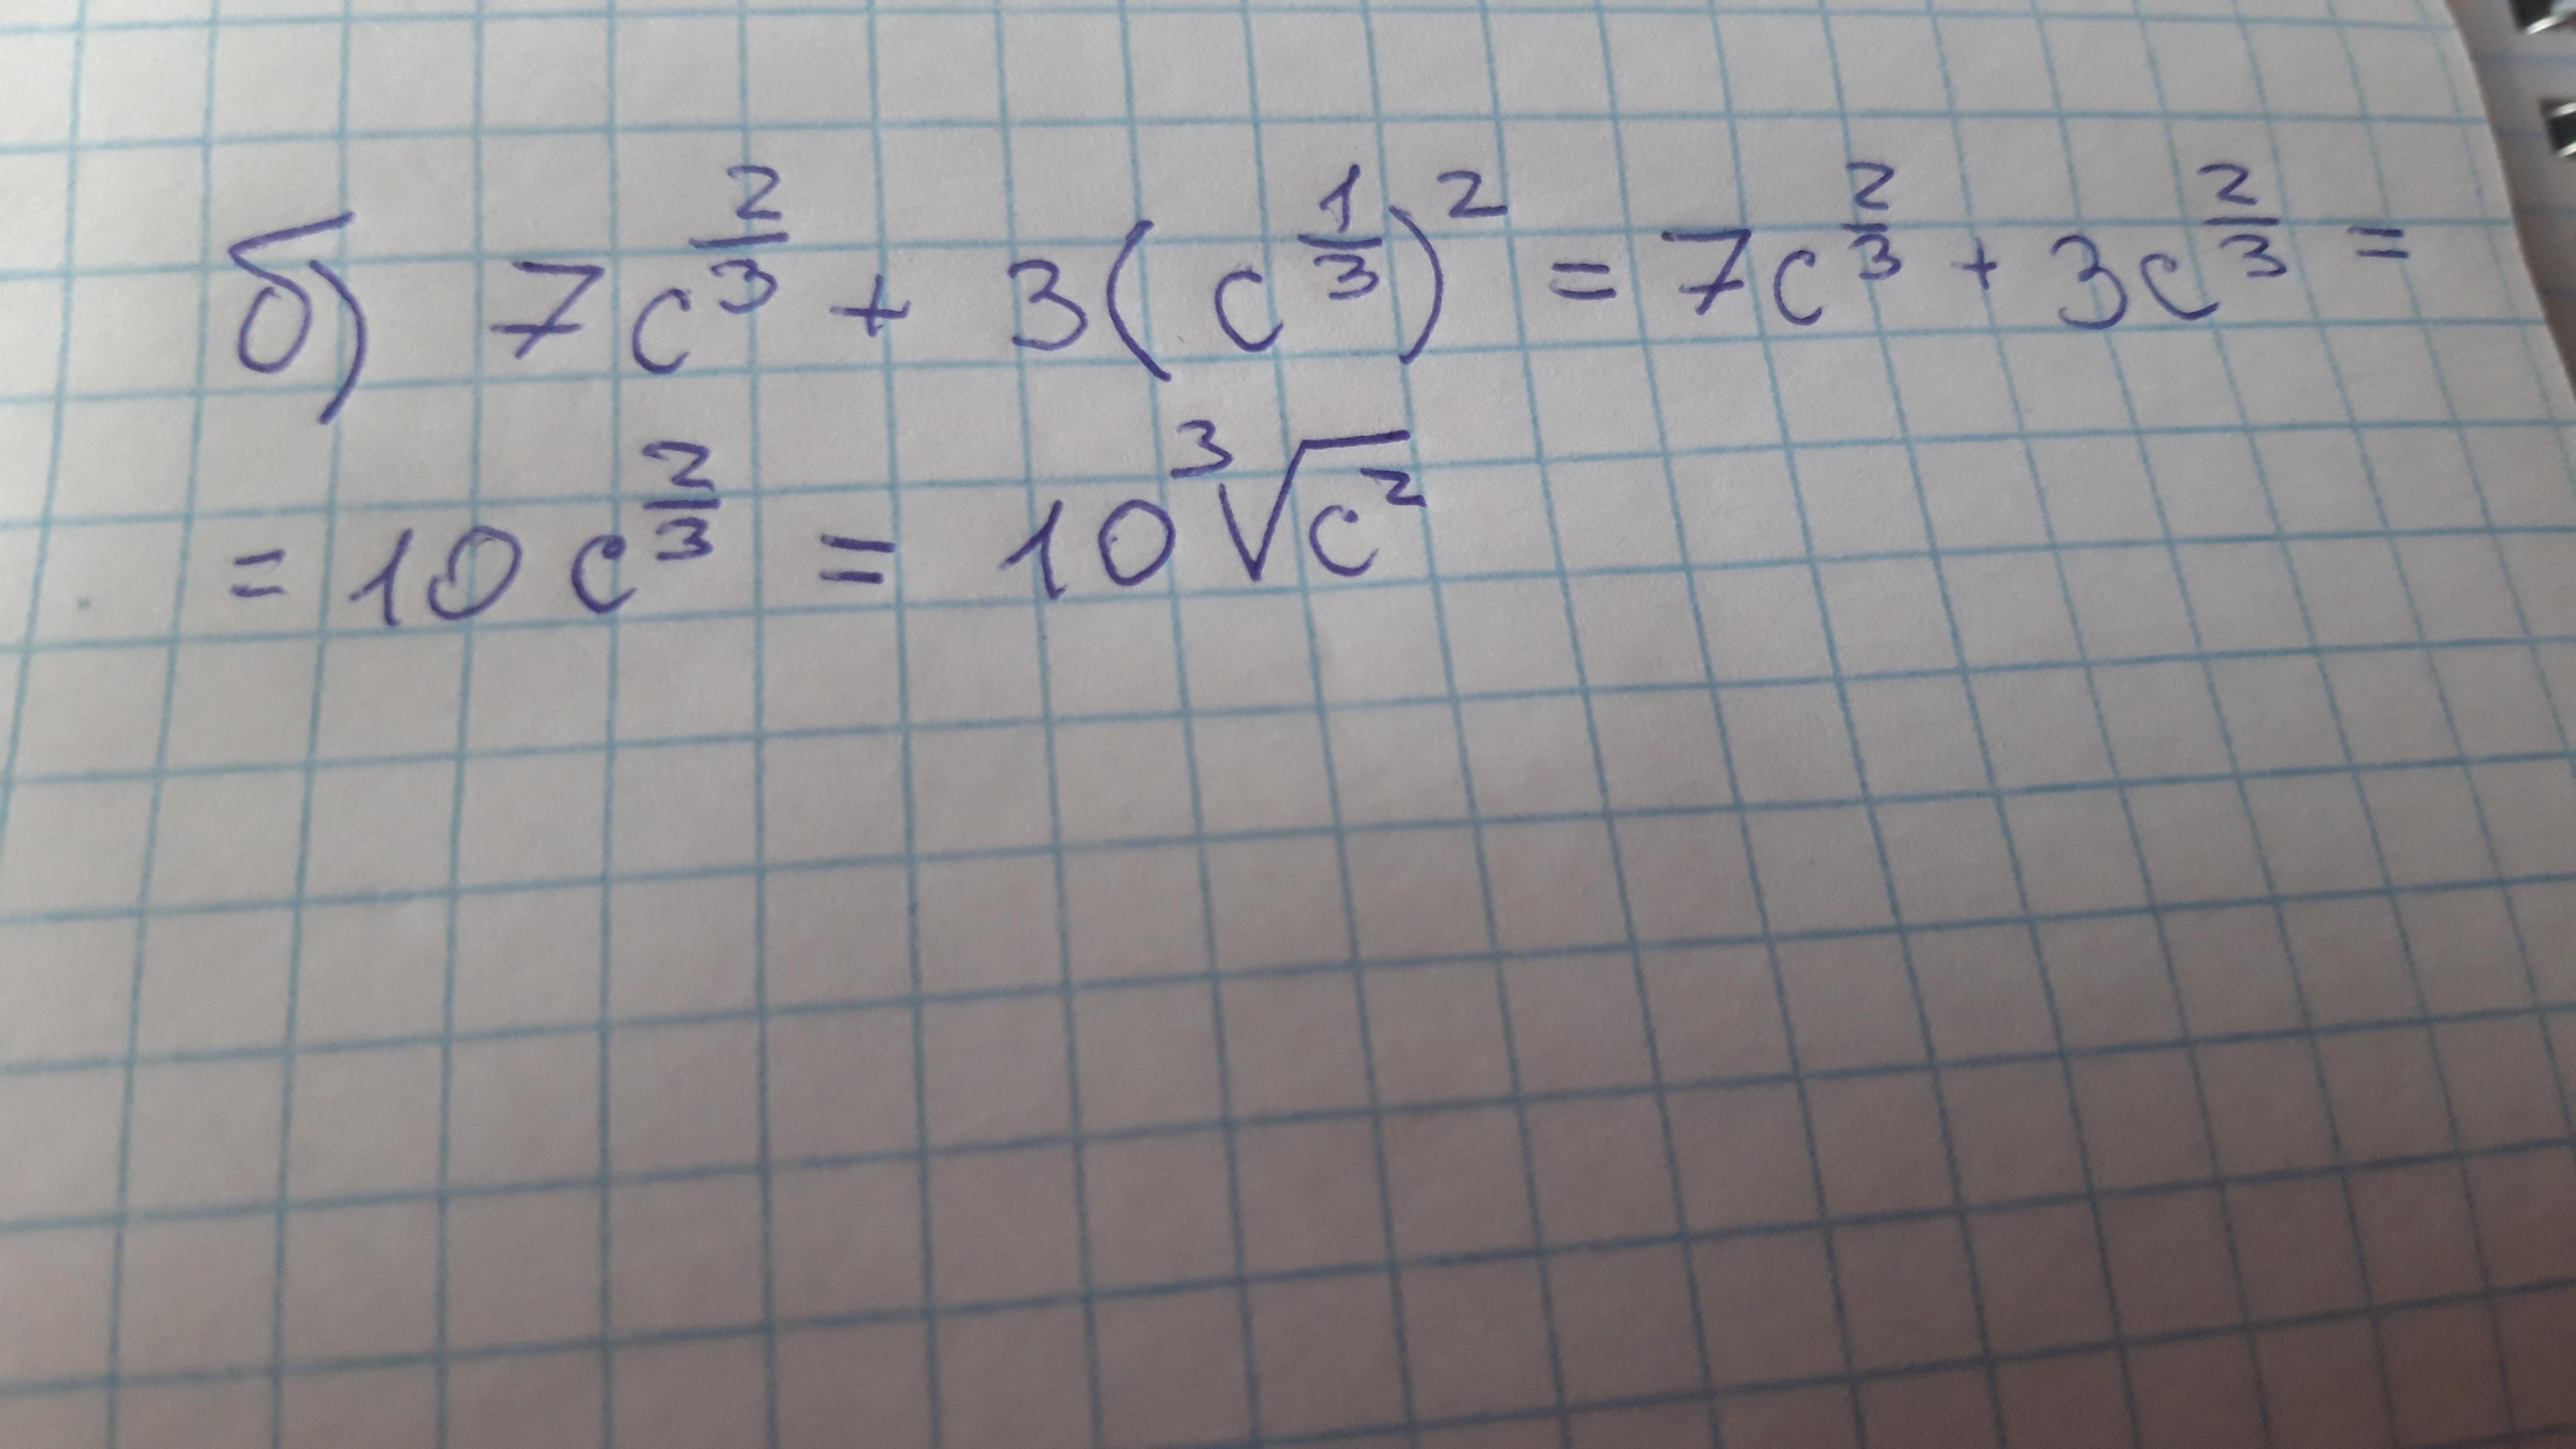 б) 7c^{\frac{2}{3}} + 3(c^{\frac{1}{3}})^2 = 7c^{\frac{2}{3}} + 3c^{\frac{2}{3}} =
= 10c^{\frac{2}{3}} = 10\sqrt[3]{c^2}